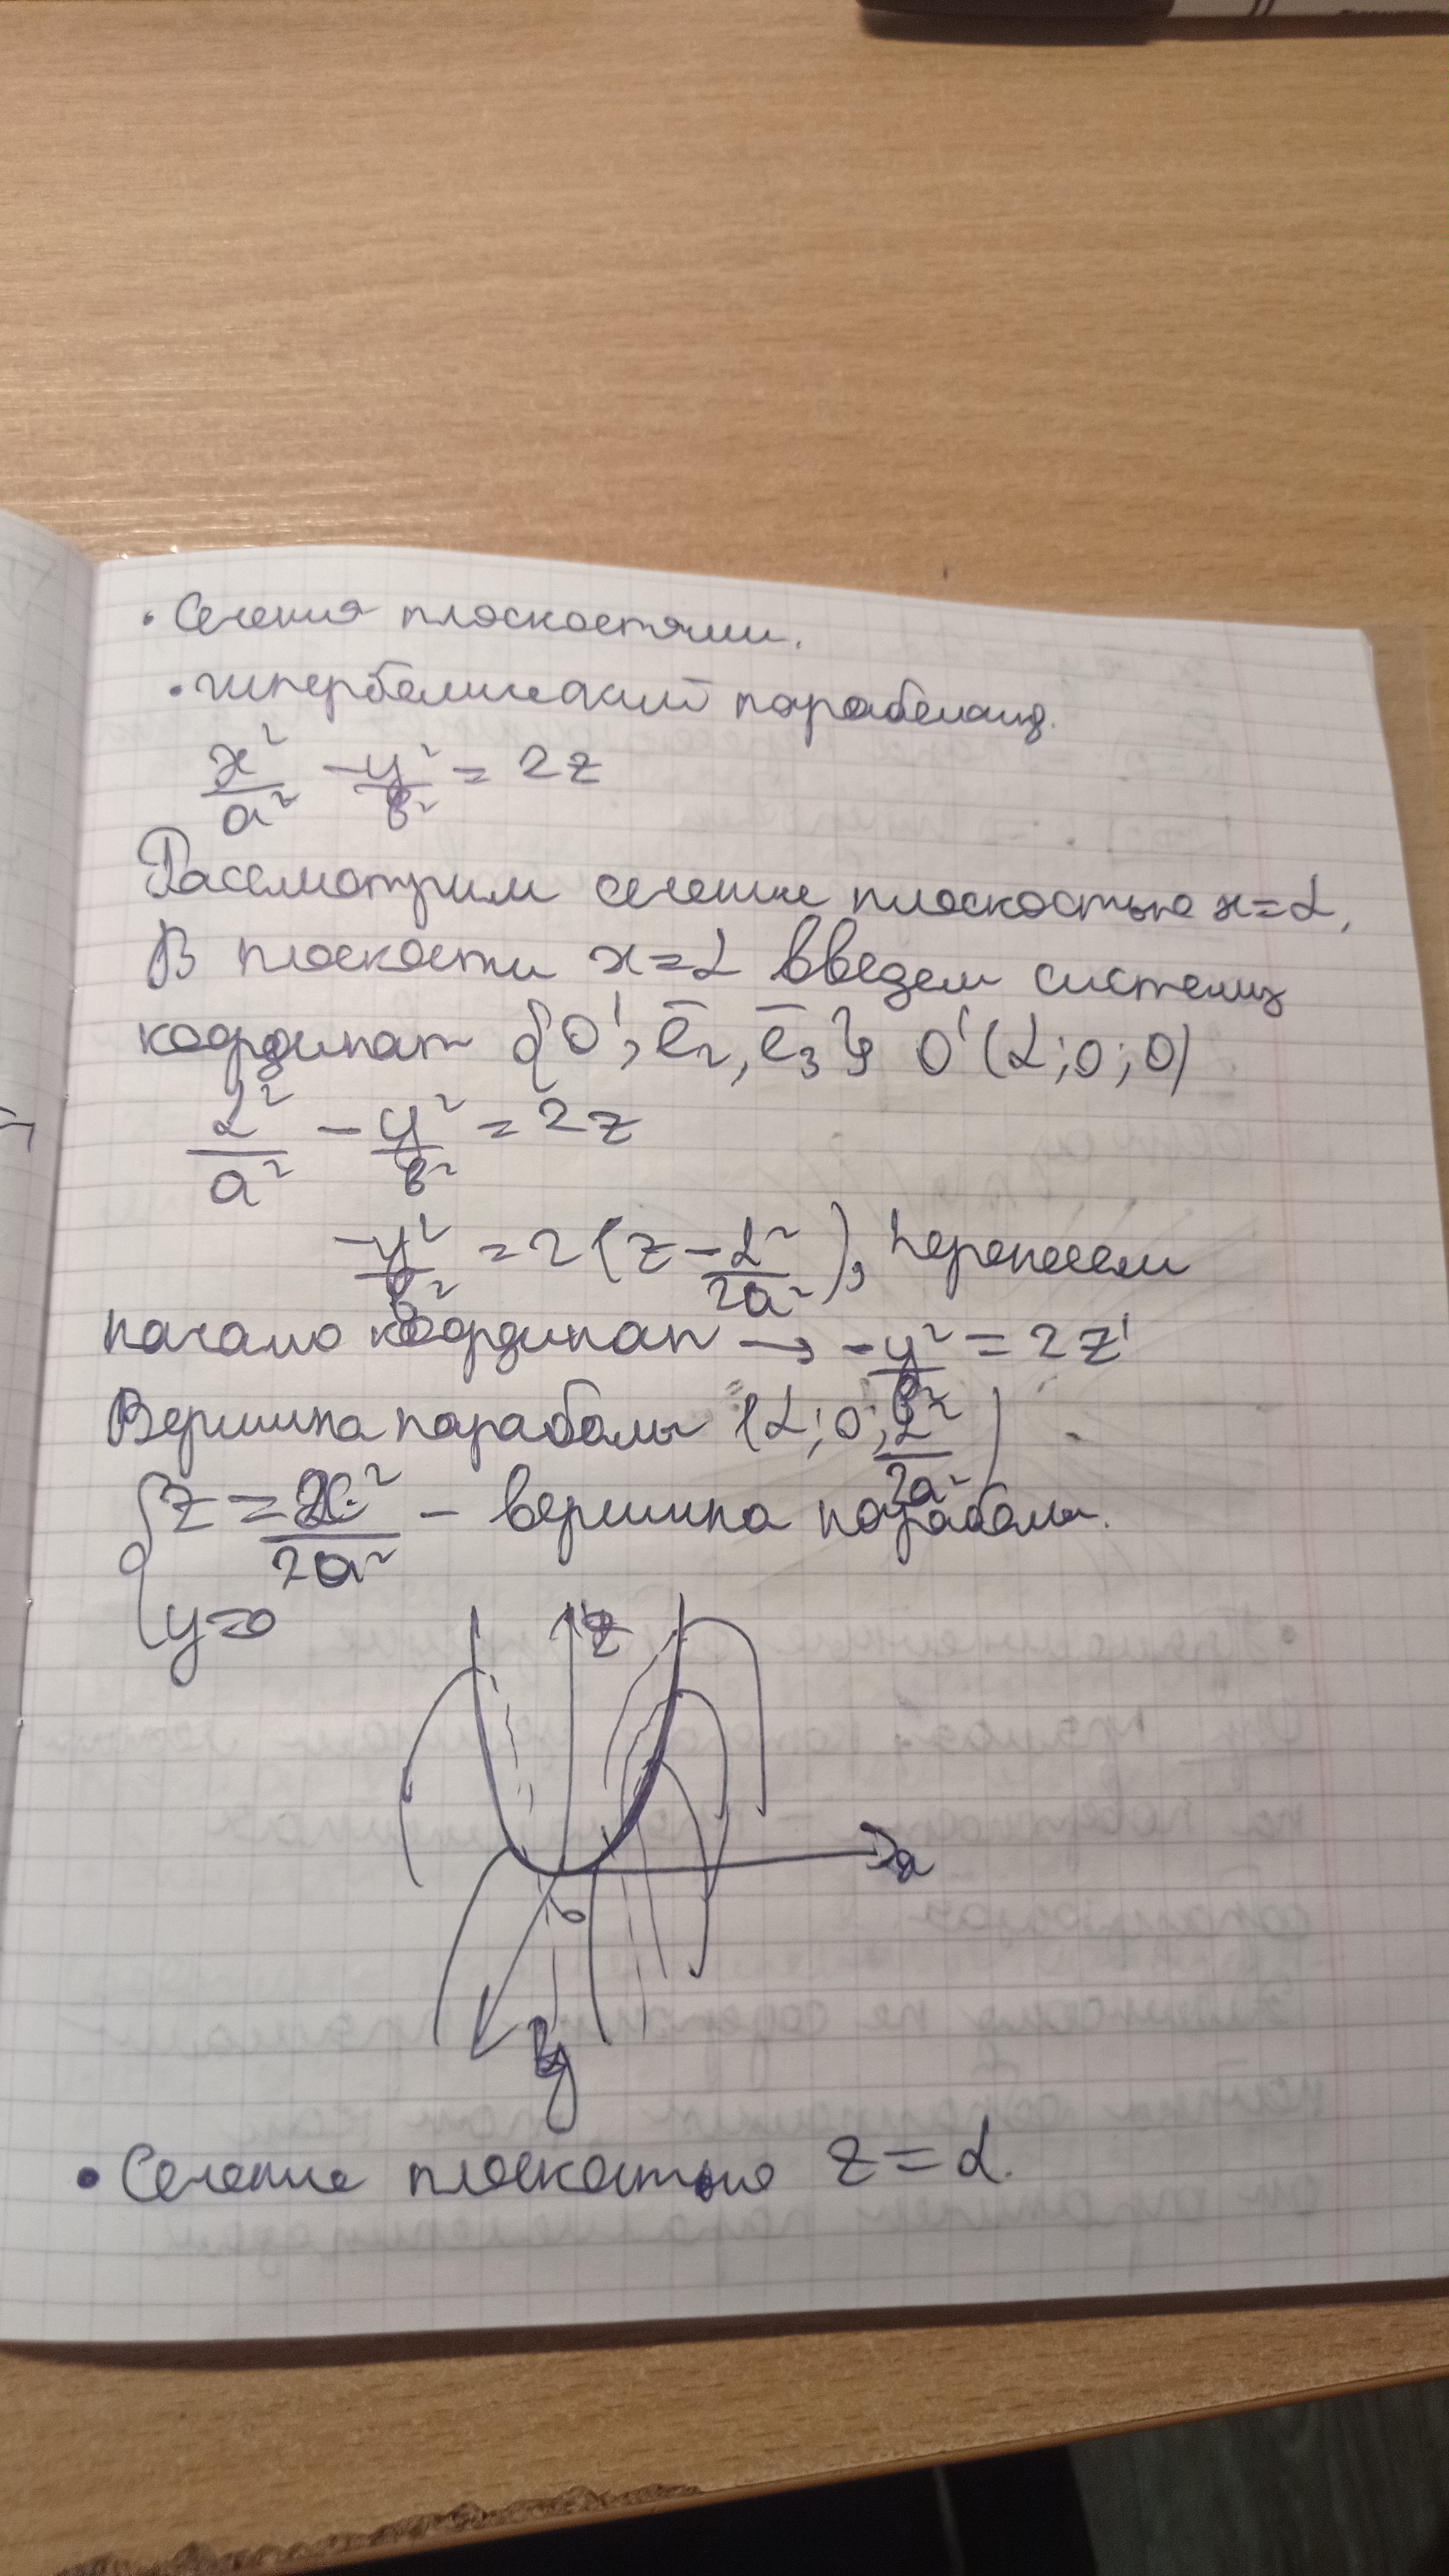 • Сечения плоскостями.
• гиперболический параболоид.
x²/a² - y²/b² = 2z
Рассмотрим сечение плоскостью x=α.
В плоскости x=α введем систему
координат {O', ē₂, ē₃} O'(α; 0; 0)
α²/a² - y²/b² = 2z
-y²/b² = 2(z - α²/2a²), перенесем
начало координат → -y²/b² = 2z'
Вершина параболы (α; 0; α²/2a²)
{ z = x²/2a² - вершина параболы.
y=0
z
x
0
y
• Сечение плоскостью z = α.